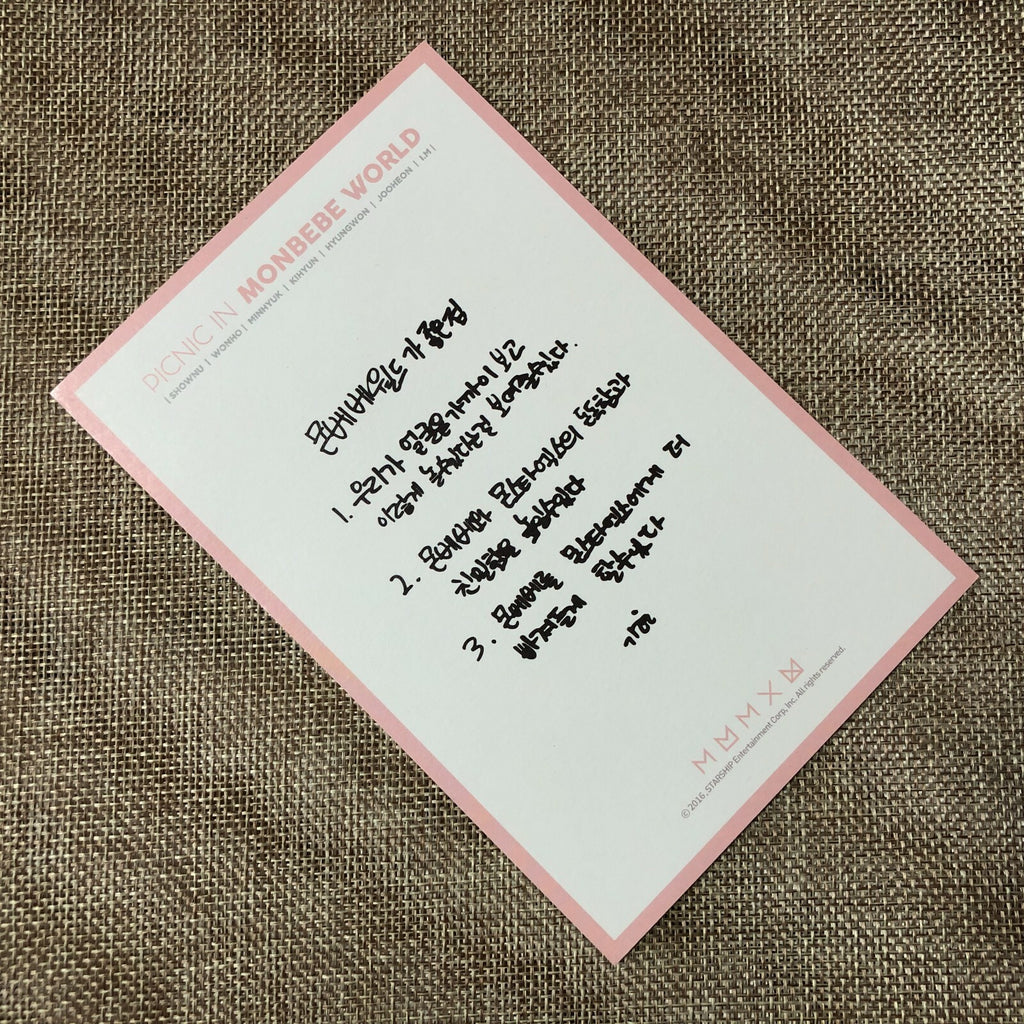 PICNIC IN MONBEBE WORLD
| SHOWNU | WONHO | MINHYUK | KIHYUN | HYUNGWON | JOOHEON | I.M |
몬베베월드가 좋은점
1. 우리가 얼굴을 가까이 보고
이렇게 놀수있다는걸 보여줄수있다.
2. 몬베베와 몬스타엑스의 돈독한
친밀감을 높일수있다
3. 몬베베를 몬스타엑스에게 더
빠져들게 할수있다
기현
© 2016. STARSHIP Entertainment Corp, Inc. All rights reserved.